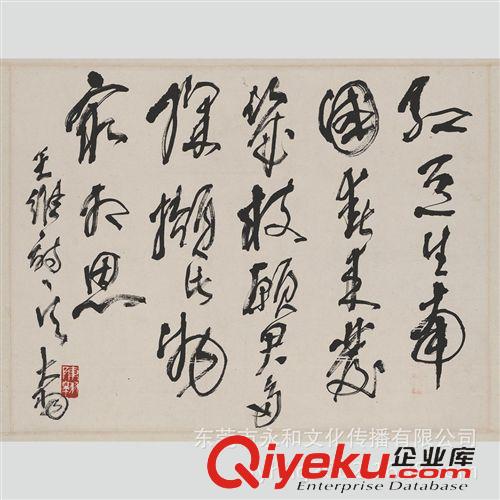 红豆生南
國春来發
幾枝願君多
採擷此物
最相思
王維詩
大羽
东莞市永和文化传播有限公司
Qiyeku.com 企业库
Enterprise Database